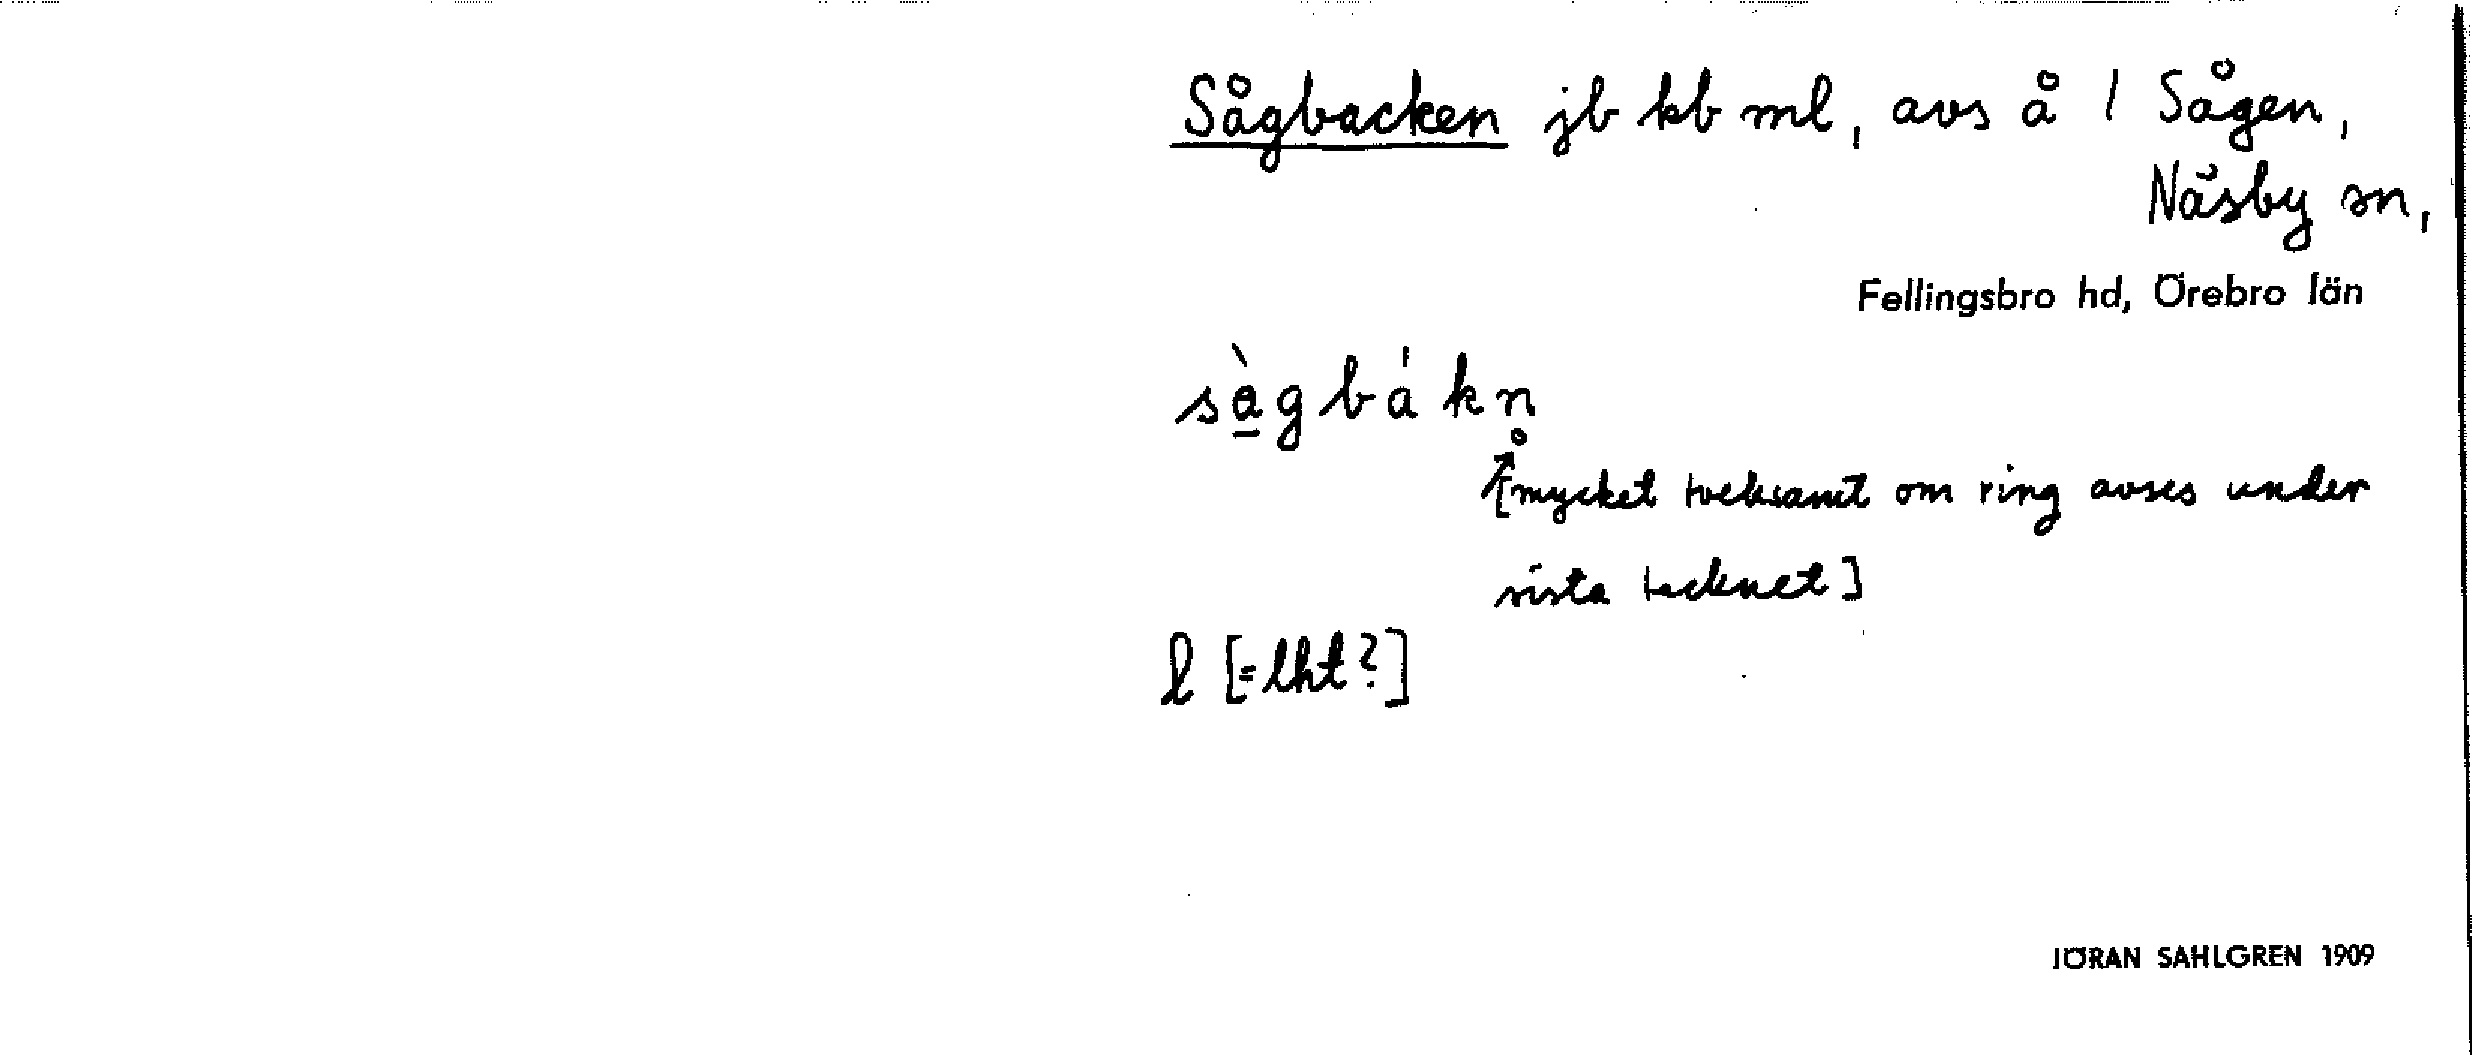 Sågbacken jb kb ml, avs å 1 Sågen,
Näsby sn,
Fellingsbro hd, Örebro län
sà̱gbákn̥
[mycket tveksamt om ring avses under
sista tecknet]
l [=lht?]
JÖRAN SAHLGREN 1909